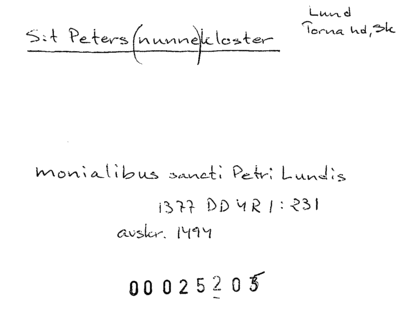 S:t Peters (nunne)kloster
Lund
Torna hd, Sk
monialibus sancti Petri Lundis
1377 DD 4R 1:231
avskr. 1494
00025203